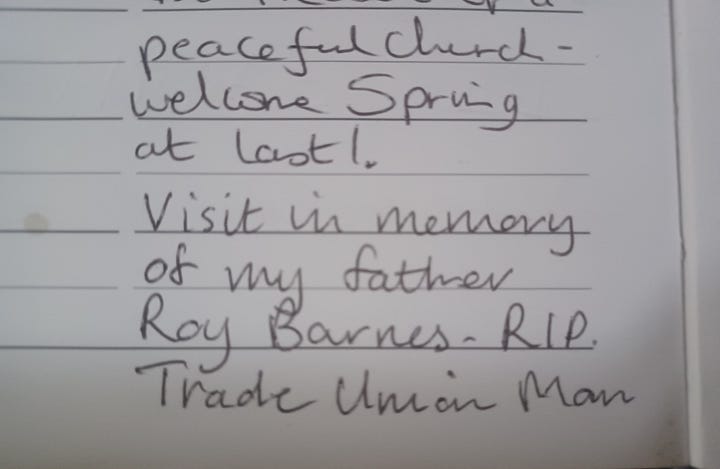 peaceful church -
welcome Spring
at last!.
Visit in memory
of my father
Roy Barnes - RIP.
Trade Union Man